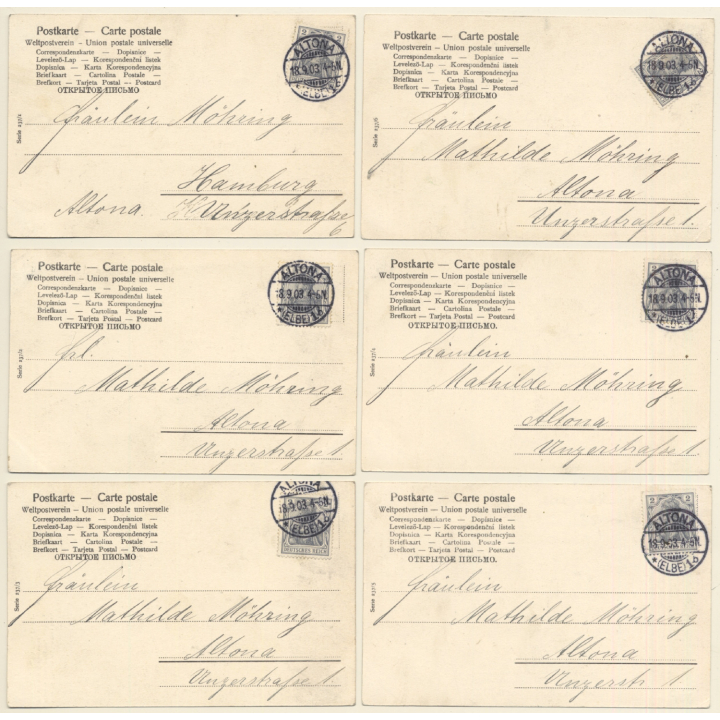 Postkarte — Carte postale
Weltpostverein – Union postale universelle
Correspondenzkarte — Dopisnice —
Levelező-Lap — Korespondenční listek
Dopisnica — Karta Korespondencyjna
Briefkaart — Cartolina Postale —
Brefkort — Tarjeta Postal — Postcard
ОТКРЫТОЕ ПИСЬМО
2 2
ALTONA
18.9.03. 4-5N.
* (ELBE) 1
Fräulein Möhring
Hamburg
Altona. Unzerstraße
Postkarte — Carte postale
Weltpostverein – Union postale universelle
Correspondenzkarte — Dopisnice —
Levelező-Lap — Korespondenční listek
Dopisnica — Karta Korespondencyjna
Briefkaart — Cartolina Postale —
Brefkort — Tarjeta Postal — Postcard
ОТКРЫТОЕ ПИСЬМО
ALTONA
18.9.03. 4-5N.
* (ELBE) 1
Fräulein
Mathilde Möhring
Altona
Unzerstraße 1.
Postkarte — Carte postale
Weltpostverein – Union postale universelle
Correspondenzkarte — Dopisnice —
Levelező-Lap — Korespondenční listek
Dopisnica — Karta Korespondencyjna
Briefkaart — Cartolina Postale —
Brefkort — Tarjeta Postal — Postcard
ОТКРЫТОЕ ПИСЬМО
ALTONA
18.9.03. 4-5N.
* (ELBE) 1
Frl.
Mathilde Möhring
Altona
Unzerstraße 1.
Postkarte — Carte postale
Weltpostverein – Union postale universelle
Correspondenzkarte — Dopisnice —
Levelező-Lap — Korespondenční listek
Dopisnica — Karta Korespondencyjna
Briefkaart — Cartolina Postale —
Brefkort — Tarjeta Postal — Postcard
ОТКРЫТОЕ ПИСЬМО.
ALTONA
18.9.03. 4-5N.
* (ELBE) 1
Fräulein
Mathilde Möhring
Altona
Unzerstraße 1.
Postkarte — Carte postale
Weltpostverein – Union postale universelle
Correspondenzkarte — Dopisnice —
Levelező-Lap — Korespondenční listek
Dopisnica — Karta Korespondencyjna
Briefkaart — Cartolina Postale —
Brefkort — Tarjeta Postal — Postcard
ОТКРЫТОЕ ПИСЬМО
ALTONA
18.9.03. 4-5N.
* (ELBE) 1
DEUTSCHES REICH
Serie 237/3
Fräulein
Mathilde Möhring
Altona
Unzerstraße 1.
Postkarte — Carte postale
Weltpostverein – Union postale universelle
Correspondenzkarte — Dopisnice —
Levelező-Lap — Korespondenční listek
Dopisnica — Karta Korespondencyjna
Briefkaart — Cartolina Postale —
Brefkort — Tarjeta Postal — Postcard
ОТКРЫТОЕ ПИСЬМО.
2 2
ALTONA
18.9.03. 4-5N.
* (ELBE) 1
Serie 237/5
Fräulein
Mathilde Möhring
Altona
Unzerstr. 1.